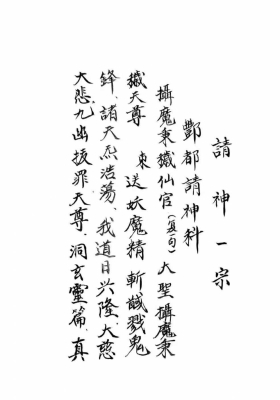 請神一宗
酆都請神科
攝魔秉籙仙官(复句)大聖攝魔秉
籙天尊 束送妖魔精 斬馘戮鬼
鋒、諸天炁浩蕩、我道日兴隆、大慈
大悲九幽拔罪天尊、洞玄靈篇、真